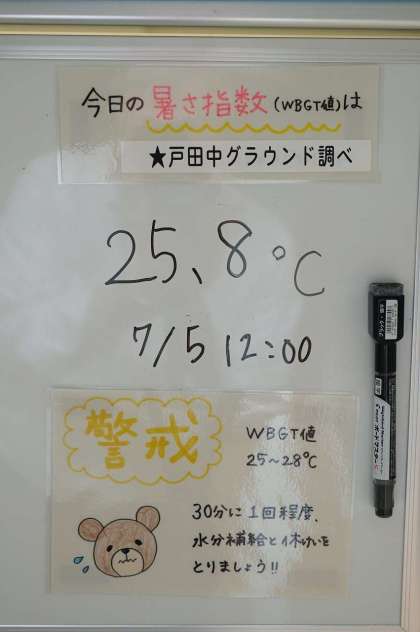 今日の暑さ指数(WBGT値)は
★戸田中グラウンド調べ
25、8℃
7/5 12:00
警戒
WBGT値
25~28℃
30分に1回程度、
水分補給と休けいを
とりましょう!!